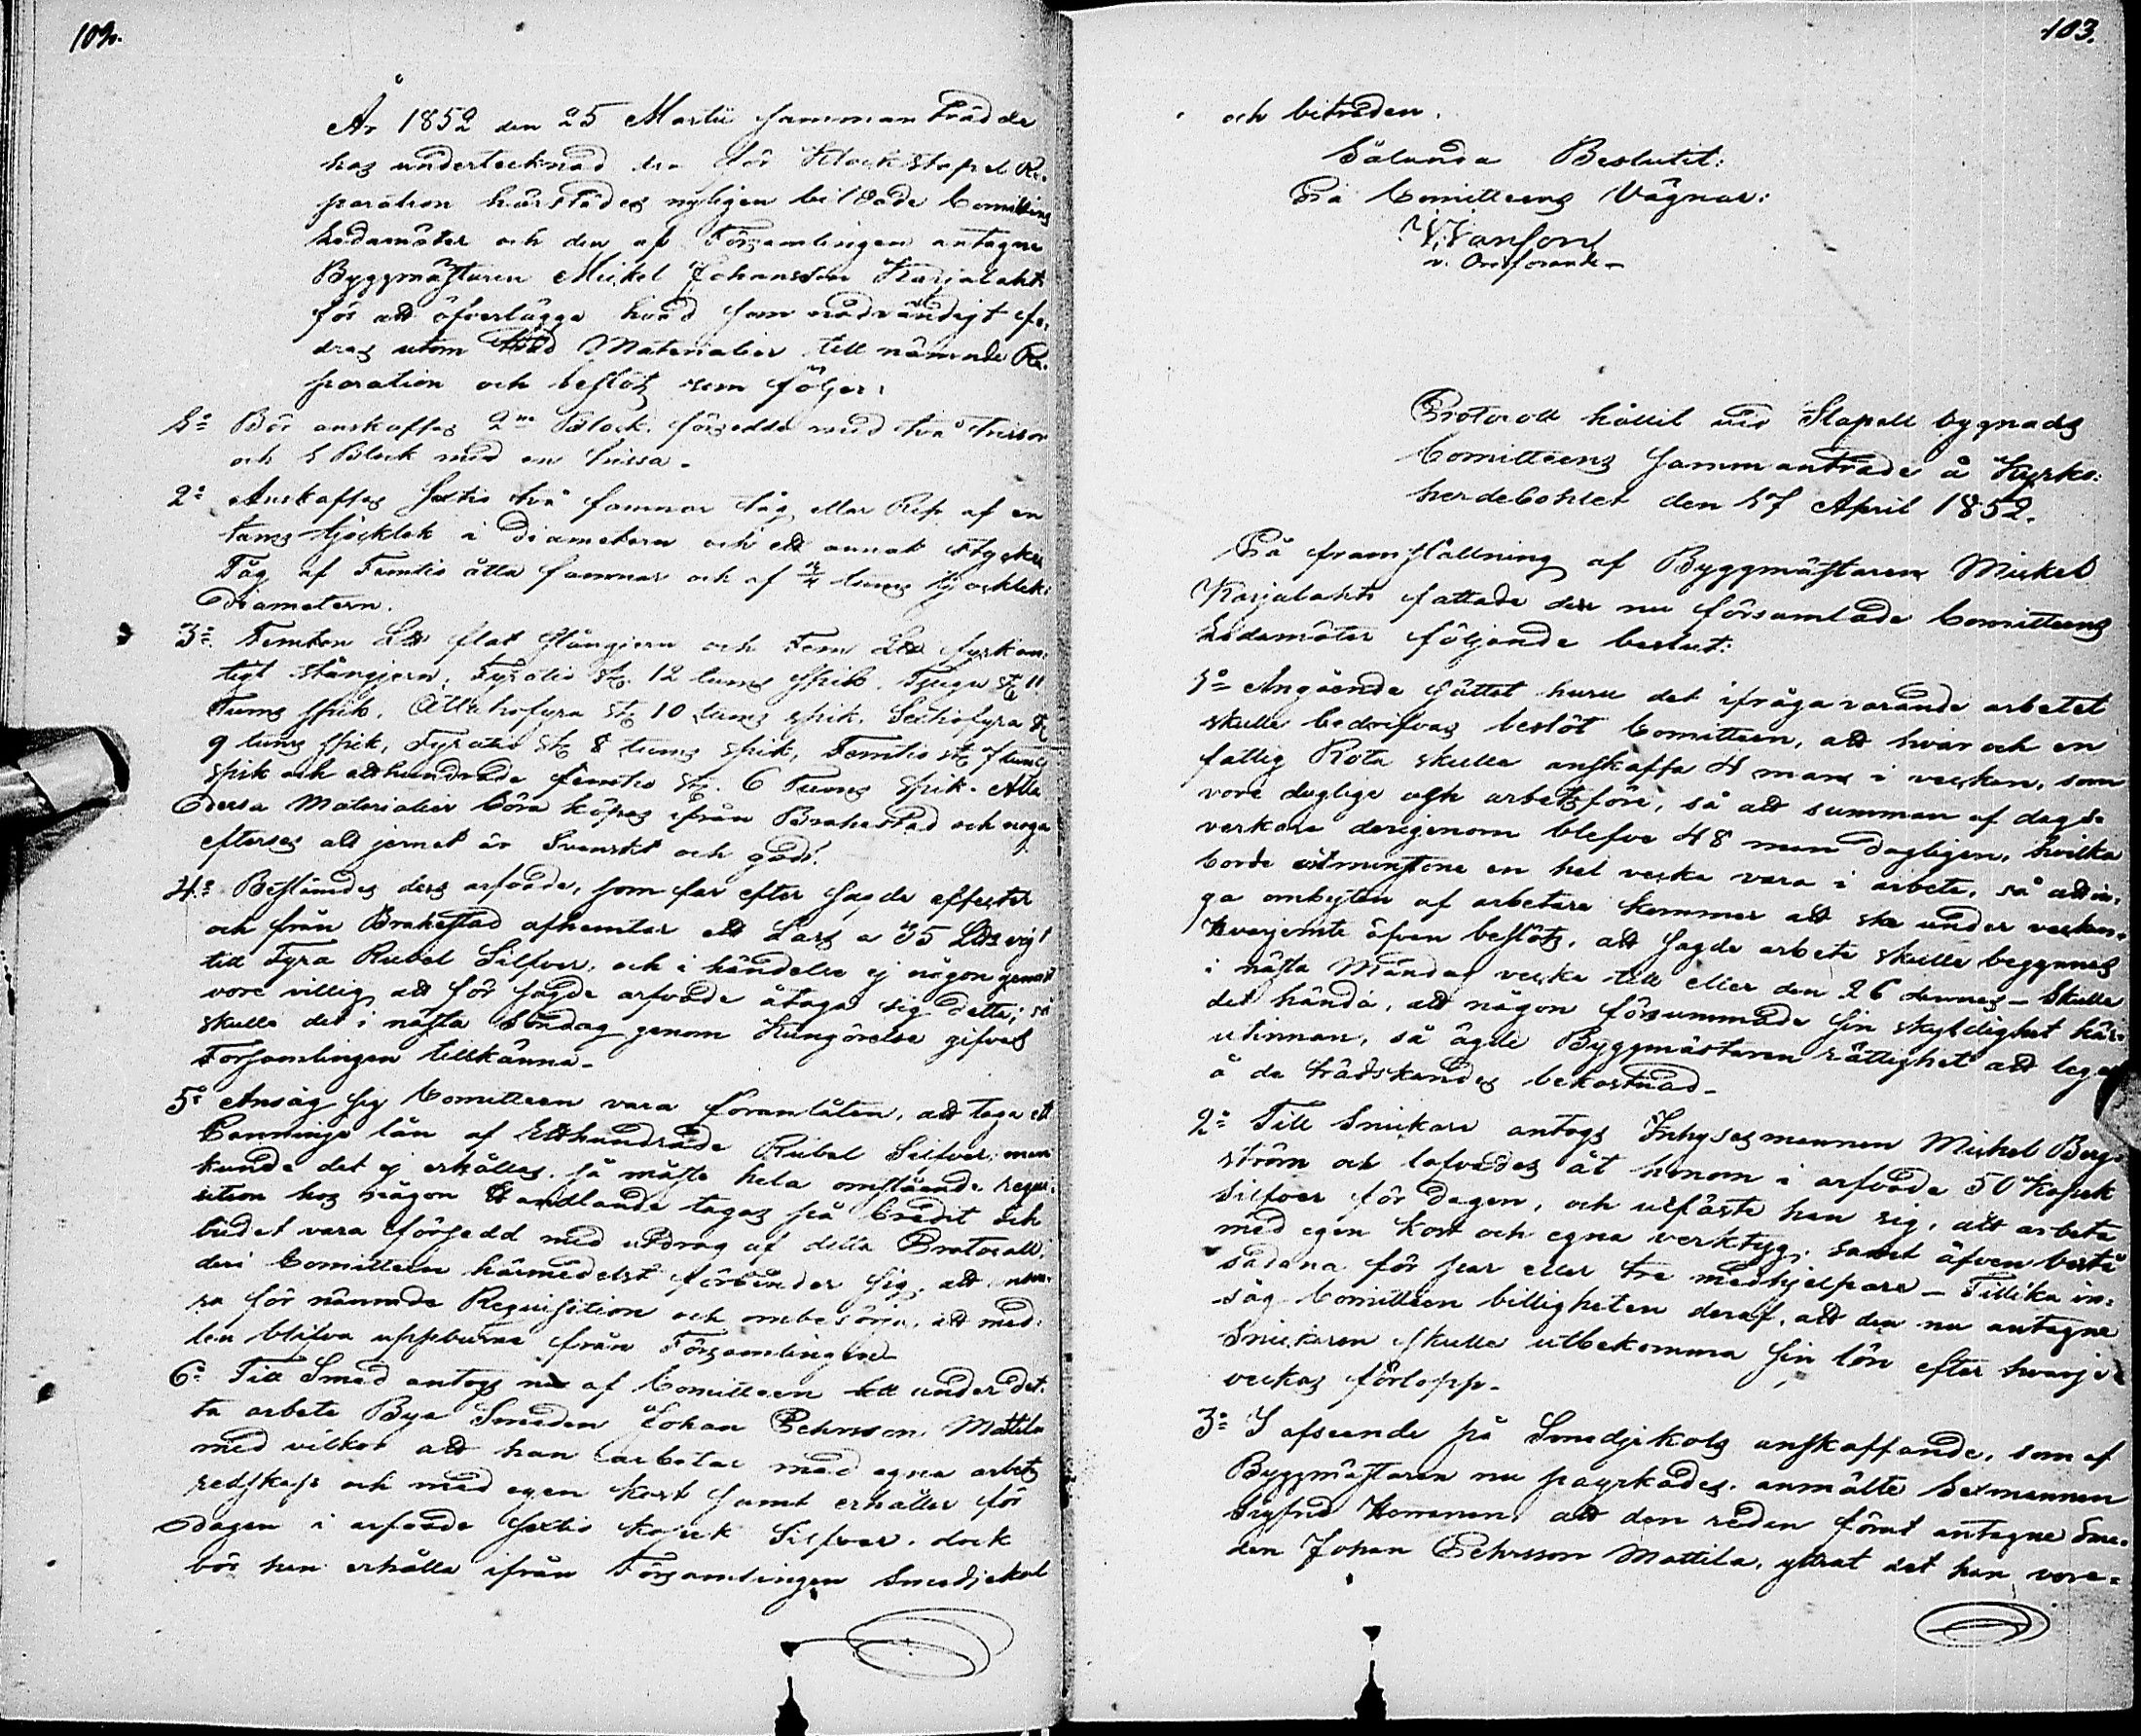 102.
År 1852 den 25 Martii sammanträdde
hos undertecknad de för Klockstapel Re-
paration härstädes nyligen bildade Comitteens
Ledamöter och den af Församlingen antagne
Byggmästaren Mickel Johansson Karjalahti
för att öfverlägga hvad som nödvändigt for-
dras utom Träd Materialier till nämnde Re-
paration och beslöts som följer:
1:o Bör anskaffas 2:ne Block försedde med två trissor
och 1 Block med en trissa.
2:o Anskaffas Sextio två famnar tåg eller Rep af en
tums tjocklek i Diametern och ett annat stycke
Tåg af Femtio åtta famnar och af tums tjocklek
Diametern.
3:o Femton L℔ flat stångjern och Fem L℔ fyrkan-
tigt stångjern, Fyratio st. 12 tums spik, Tjugu st. 11
Tums spik, Åttatiofyra st. 10 tums spik, Sextiofyra st.
9 tums spik, Fyratio st. 8 tums spik, Femtio st. 7 tums
spik och etthundrade femtio st. 6 Tums spik. Alla
dessa Materialier böra köpas ifrån Brahestad och noga
efterses att jernet är Svenskt och godt.
4:o Bestämdes dess arfvode, som far efter sagde effecter
och från Brahestad afhemtar ett Lass a 35 L℔ vigt
till Fyra Rubel Silfver, och i händelse ej någon genast
vore villig att för sagde arfvode åtaga sig detta, så
skulle det i nästa Söndag genom Kungörelse gifvas
Församlingen tillkänna.
5:o Ansåg sig Comitteen vara föranlåten, att taga ett
Pennings lån af Etthundrade Rubel Silfver; men
kunde det ej erhållas, så måste hela omstående requi-
sition hos någon Handlande tagas på Credit och
budet vara försedd med utdrag af detta Protocoll,
deri Comitteen härmedelst förbinder sig, att ansva-
ra för nämnde Requisition och ombesörja, att med-
len blifva uppburne från Församlingen.
6:o Till Smed antogs nu af Comitteen till under det-
ta arbete Bya Smeden Johan Pehrsson Mattila
med vilkor att han arbetar med egna arbets
redskap och med egen kost samt erhåller för
dagen i arfvode sextio kopek Silfver, dock
bör han erhålla ifrån Församlingen Smedjekol
103.
och biträden.
Sålunda Beslutit:
På Comitteens Vägnar:
v. Ordförande
Protocoll hållit vid Stapell bygnads
Comitteens sammanträde å Kyrko-
herdebohlet den 17 April 1852.
På framställning af Byggmästaren Mickel
Karjalahti fattade de nu församlade Comitteens
Ledamöter följande beslut:
1:o Angående sättet huru det ifrågavarande arbetet
skulle bedrifvas beslöt Comitteen, att hvar och en
fattig Rota skulle anskaffa 4 man i veckan, som
vore duglige och arbetsföre, så att summan af dags-
verkare derigenom blefve 48 man dagligen, hvilka
borde åtminstone en hel vecka vara i arbete, så att in-
ga ombyten af arbetare kommer att ske under veckan.
Hvarjemte äfven beslöts, att sagde arbete skulle begynnas
i nästa Måndag vecka till eller den 26 dennes – Skulle
det hända, att någon försummade sin skyldighet här-
utinnan, så ägde Byggmästaren rättighet att lega
å de trädskandes bekostnad.
2:o Till Snickare antogs Inhysesmannen Mickel Berg-
ström och lofvades åt honom i arfvode 50 Kopek
Silfver för dagen, och utfäste han sig, att arbeta
med egen kost och egna verktyg, samt äfven bestå
sådana för par eller tre medhjelpare – Tillika in-
såg Comitteen billigheten deraf, att den nu antagne
Snickaren skulle utbekomma sin lön efter hvarje
veckas förlopp.
3:o I afseende på Smedjekols anskaffande, som af
Byggmästaren nu påyrkades, anmälte Sexmannen
Sigfrid att den redan förut antagne Sme-
den Johan Pehrsson Mattila, yttrat det han vore